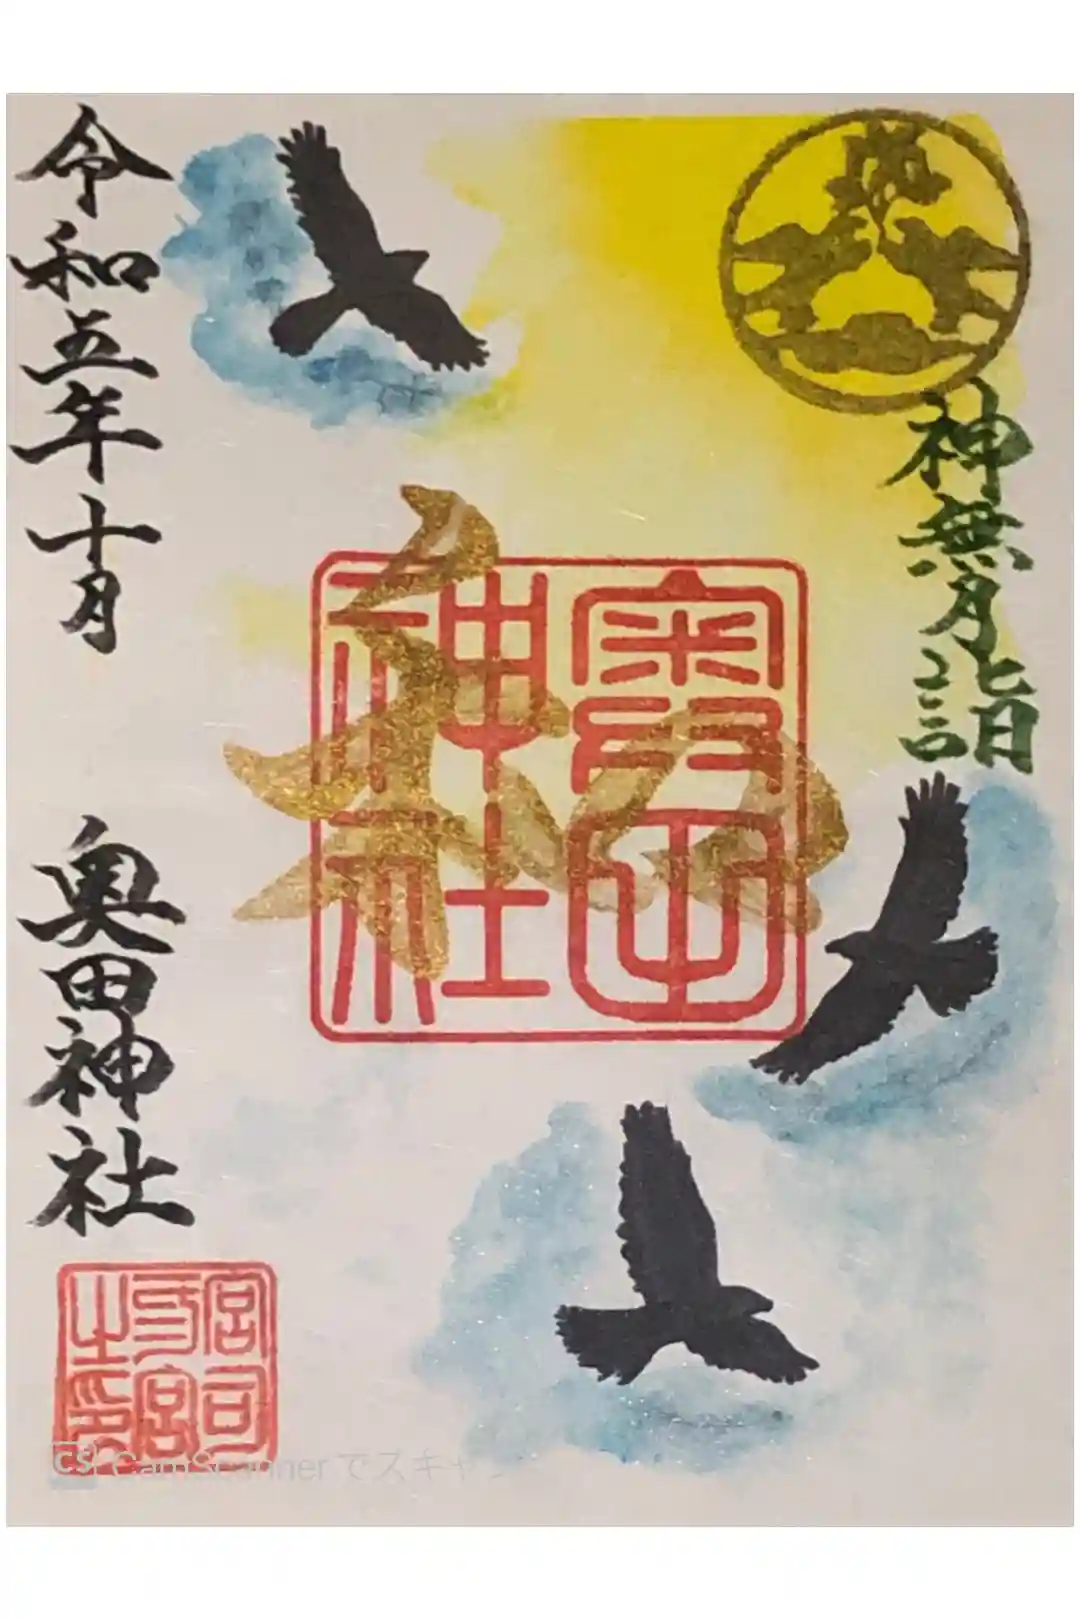 神無月詣
奥田神社
令和五年十月
奥田神社
宮司
弐宮
之印
CS CamScanner でスキャン